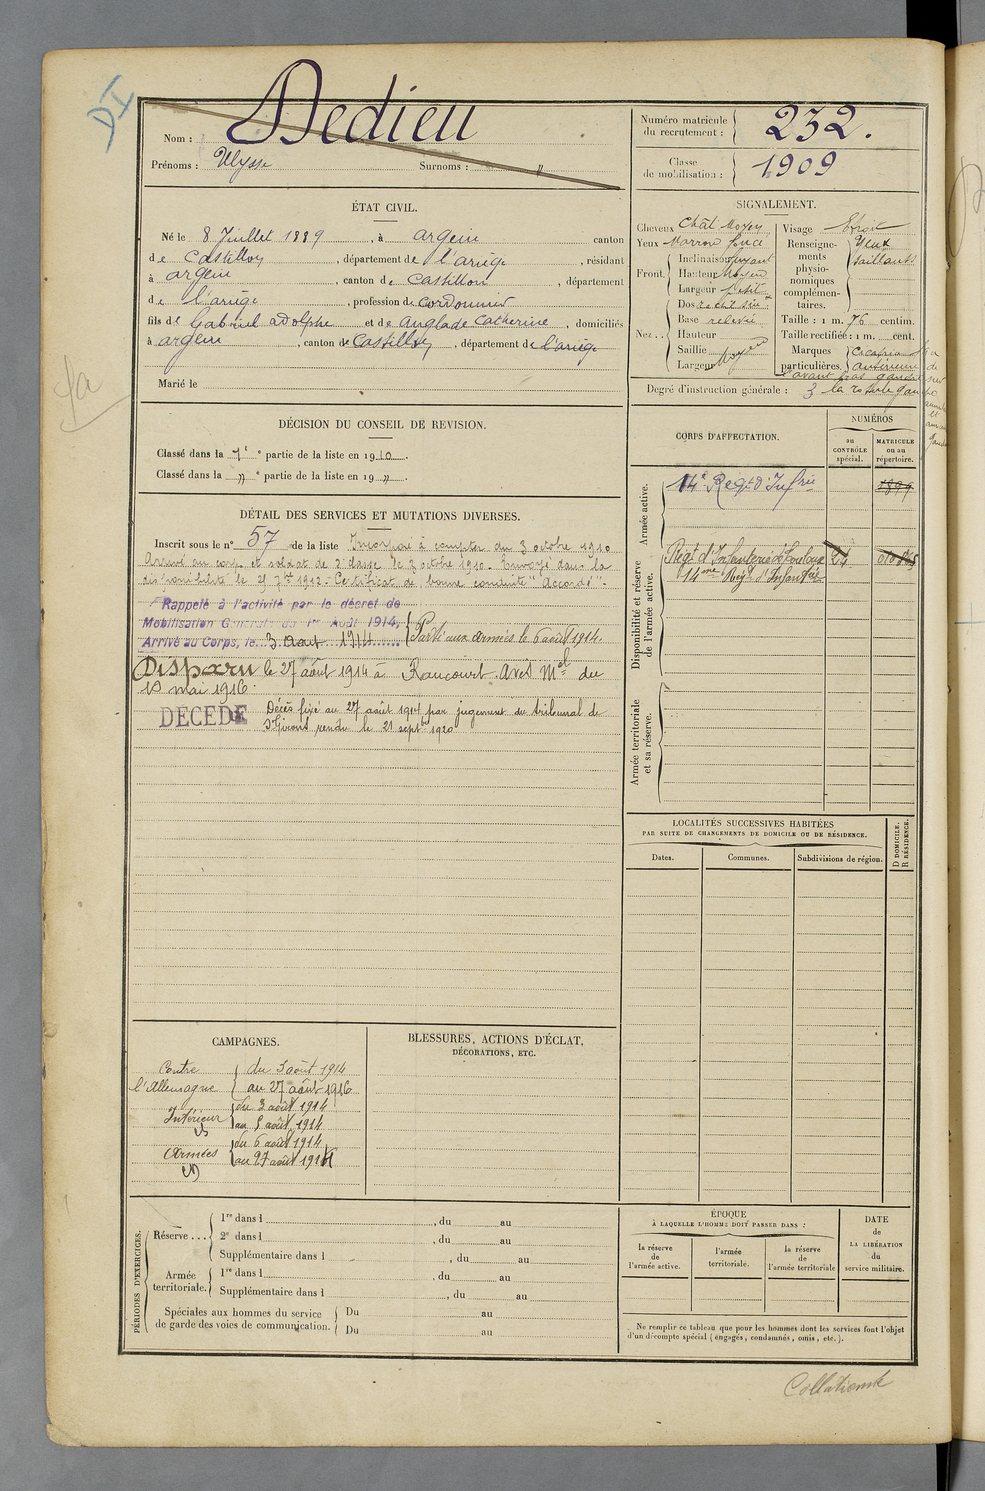 DI
Nom : Dedieu
Prénoms : Ulysse Surnoms : "
Numéro matricule du recrutement : 232.
Classe de mobilisation : 1909
ÉTAT CIVIL.
Né le 8 Juillet 1889, à argein canton
de Castillon, département de l'ariège, résidant
à argein, canton de Castillon, département
de l'ariège, profession de cordonnier
fils de Gabriel adolphe et de Anglade Catherine, domiciliés
à argein, canton de Castillon, département de l'ariège
Marié le
SIGNALEMENT.
Cheveux Chât Moyen
Yeux Marron foncé
Front. Inclinaison fuyant
Hauteur Moyen
Largeur Petit
Nez.. Dos rectiligne
Base relevée
Hauteur
Saillie Moyen
Largeur
Visage Etroit
Renseignements physionomiques complémentaires. Yeux saillants
Taille : 1 m. 76 centim.
Taille rectifiée : 1 m. cent.
Marques particulières.
Degré d'instruction générale : 3
DÉCISION DU CONSEIL DE REVISION.
Classé dans la 1e partie de la liste en 1910.
Classé dans la " e partie de la liste en 19 ".
DÉTAIL DES SERVICES ET MUTATIONS DIVERSES.
Inscrit sous le n° 57 de la liste Incorporé à compter du 3 octobre 1910
Arrivé au corps et soldat de 2e classe le 3 octobre 1910. Envoyé dans la
disponibilité le 25 7bre 1912. Certificat de bonne conduite "Accordé".
Rappelé à l'activité par le décret de
Mobilisation Générale du 1er Août 1914,
Arrivé au Corps, le 3 août 1914 Parti aux armées le 6 août 1914.
Disparu le 27 août 1914 à Raucourt. Avis Mel du
18 mai 1916.
DÉCÉDÉ Décès fixé au 27 août 1914 par jugement du tribunal de
St Girons rendu le 21 septbre 1920
CORPS D'AFFECTATION.
NUMÉROS
au CONTRÔLE spécial.
MATRICULE ou au répertoire.
Armée active.
14e Regt d'Infrie 1899
Disponibilité et réserve de l'armée active.
Régt d'Infanterie de Toulouse
14me Régt d'Infanterie
Armée territoriale et sa réserve.
LOCALITÉS SUCCESSIVES HABITÉES
PAR SUITE DE CHANGEMENTS DE DOMICILE OU DE RÉSIDENCE.
Dates.
Communes.
Subdivisions de région.
D DOMICILE.
R RÉSIDENCE.
CAMPAGNES.
Contre l'Allemagne du 3 août 1914
au 27 août 1916
Intérieur du 3 août 1914
au 5 août 1914
Armées du 6 août 1914
au 27 août 1914
BLESSURES, ACTIONS D'ÉCLAT,
DÉCORATIONS, ETC.
PÉRIODES D'EXERCICES.
Réserve ... 1re dans l , du au
2e dans l , du au
Supplémentaire dans l , du au
Armée territoriale. 1re dans l , du au
Supplémentaire dans l , du au
Spéciales aux hommes du service Du au
de garde des voies de communication. Du au
ÉPOQUE
À LAQUELLE L'HOMME DOIT PASSER DANS :
la réserve de l'armée active.
l'armée territoriale.
la réserve de l'armée territoriale
DATE
de
LA LIBÉRATION
du
service militaire.
Ne remplir ce tableau que pour les hommes dont les services font l'objet
d'un décompte spécial (engagés, condamnés, omis, etc.).